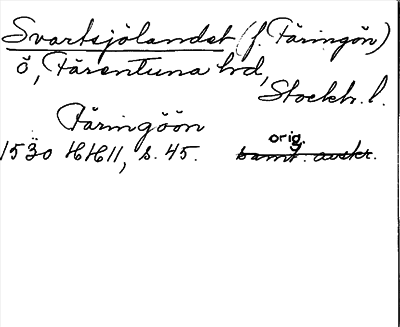 Svartsjölandet (f. Färingön)
ö, Färentuna hd,
Stockh. l.
Färingöön
orig.
1530 HH 11, s. 45. samt. avskr.